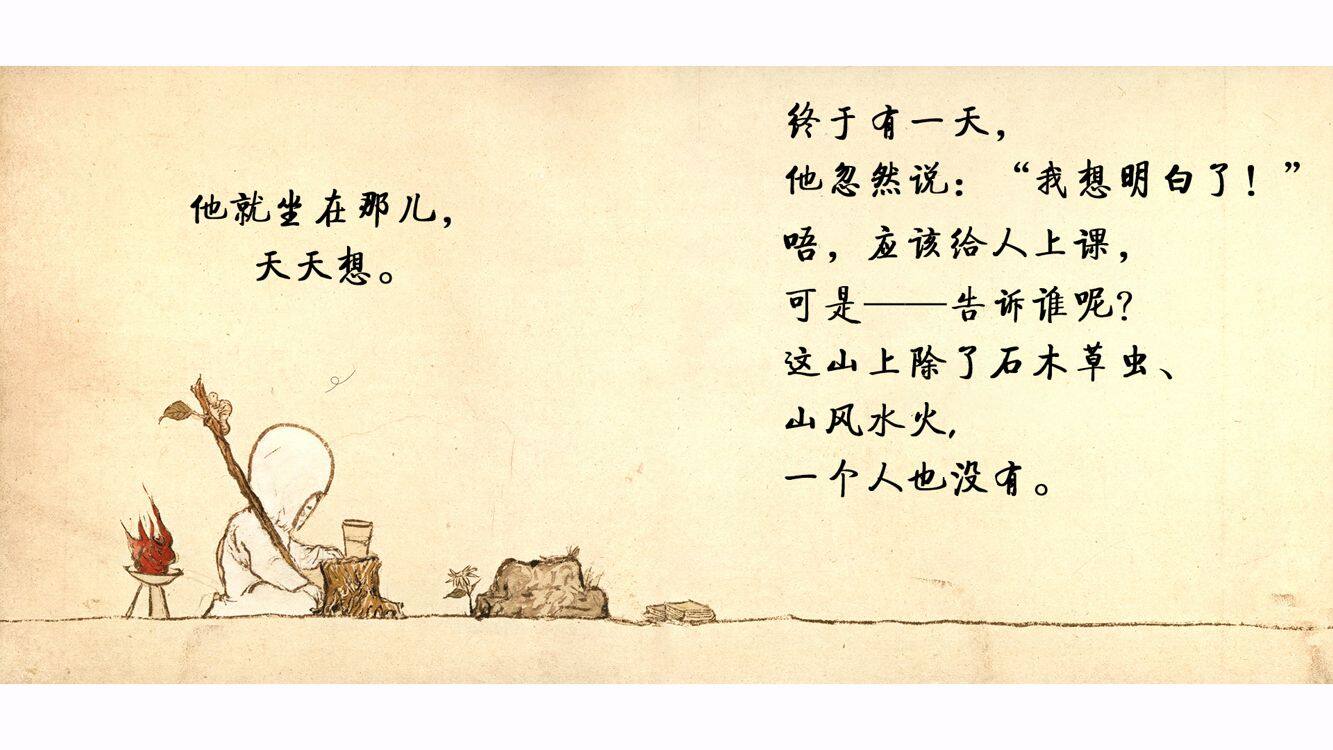 他就坐在那儿，
天天想。
终于有一天，
他忽然说：“我想明白了！”
唔，应该给人上课，
可是——告诉谁呢？
这山上除了石木草虫、
山风水火，
一个人也没有。